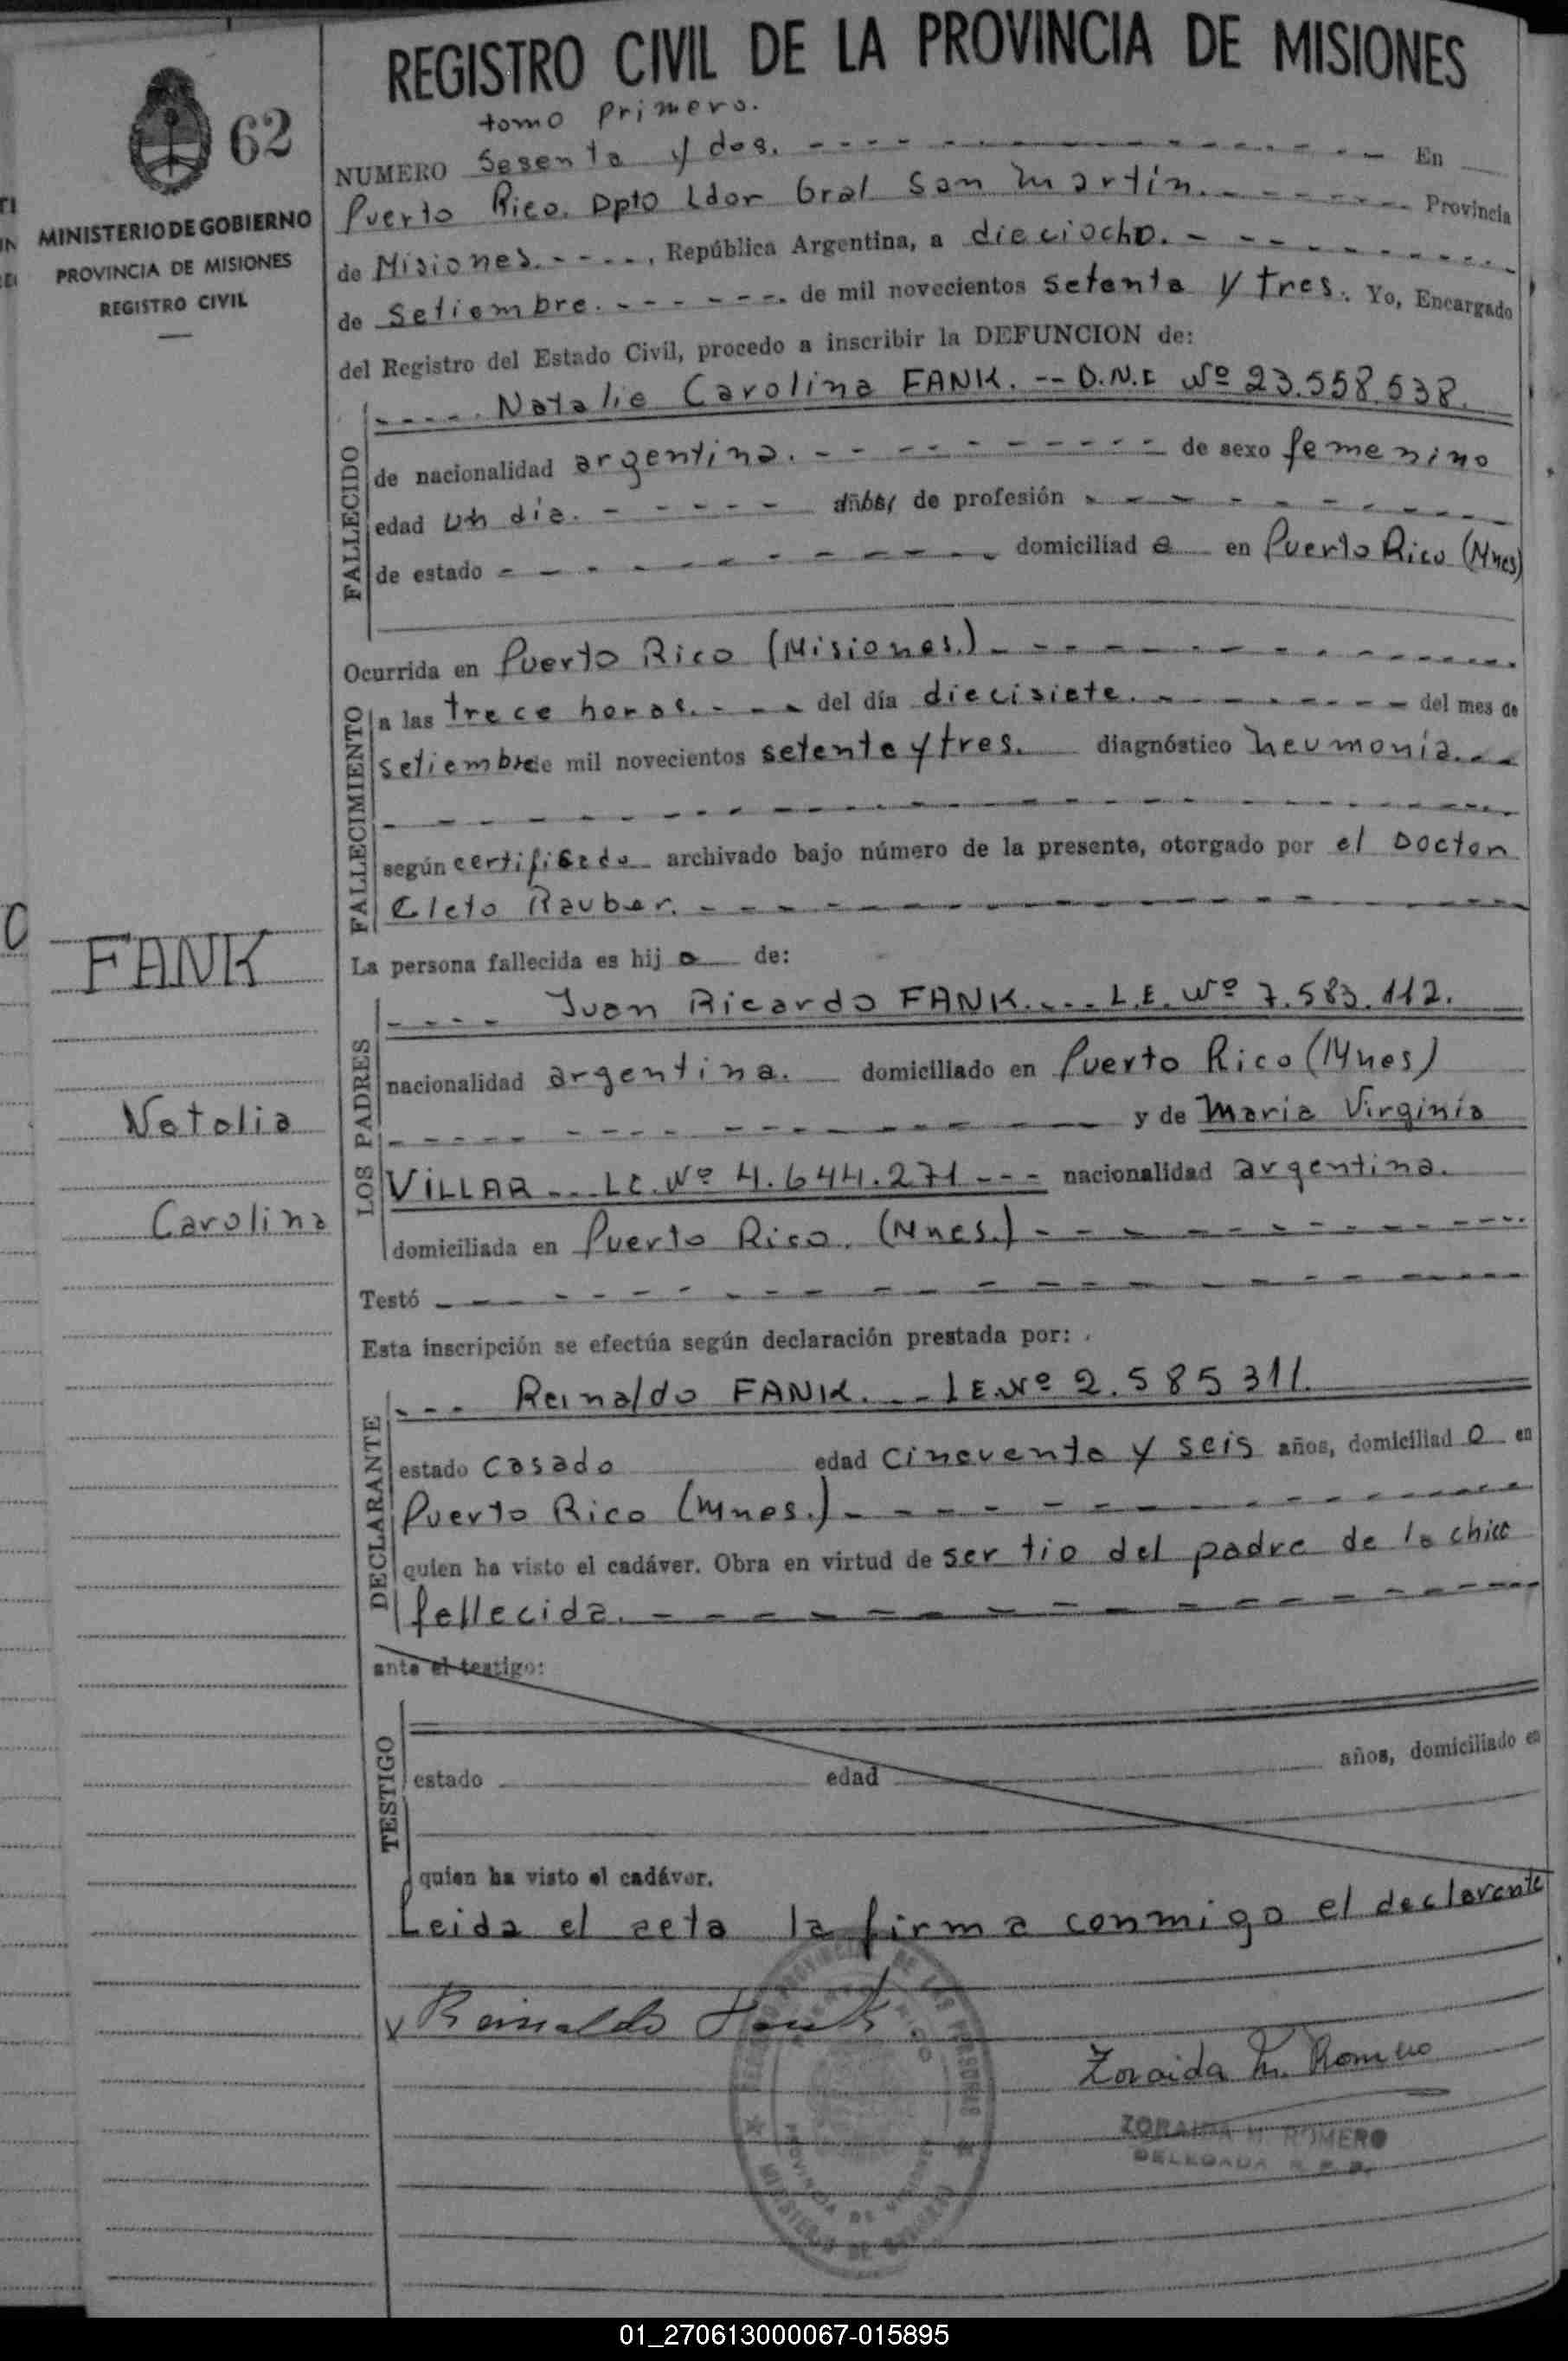 REGISTRO CIVIL DE LA PROVINCIA DE MISIONES
62
MINISTERIO DE GOBIERNO
PROVINCIA DE MISIONES
REGISTRO CIVIL
tomo primero.
NUMERO Sesenta y dos. En
Puerto Rico. Dpto Ldor Gral San Martín. Provincia
de Misiones. , República Argentina, a dieciocho.
de Setiembre. de mil novecientos setenta y tres. Yo, Encargado
del Registro del Estado Civil, procedo a inscribir la DEFUNCION de:
FALLECIDO
Natalia Carolina FANK. -- D.N.I Nº 23.558.538.
de nacionalidad argentina. de sexo femenino
edad un dia. años, de profesión
de estado domiciliad a en Puerto Rico (Mnes)
Ocurrida en Puerto Rico (Misiones.)
FALLECIMIENTO
a las trece horas. del día diecisiete. del mes de
setiembre de mil novecientos setenta y tres. diagnóstico neumonía.
según certificado archivado bajo número de la presente, otorgado por el Doctor
Cleto Rauber.
La persona fallecida es hij a de:
LOS PADRES
Juan Ricardo FANK. L.E. Nº 7.583.112.
nacionalidad argentina. domiciliado en Puerto Rico (Mnes)
y de Maria Virginia
VILLAR L.C. Nº 4.644.271 nacionalidad argentina.
domiciliada en Puerto Rico. (Mnes.)
Testó
Esta inscripción se efectúa según declaración prestada por:
DECLARANTE
Reinaldo FANK. L.E. Nº 2.585311.
estado casado edad cincuenta y seis años, domiciliad o en
Puerto Rico (Mnes.)
quien ha visto el cadáver. Obra en virtud de ser tio del padre de la chica
fallecida.
ante el testigo:
TESTIGO
estado edad años, domiciliado en
quien ha visto el cadáver.
Leida el acta la firma conmigo el declarante
Reinaldo Fank
Zoraida M. Romero
ZORAIDA M. ROMERO
DELEGADA R. P. P.
REGISTRO PROVINCIAL DE LAS PERSONAS
PUERTO RICO
PROVINCIA DE MISIONES
MINISTERIO DE GOBIERNO
FANK
Natalia
Carolina
01_270613000067-015895